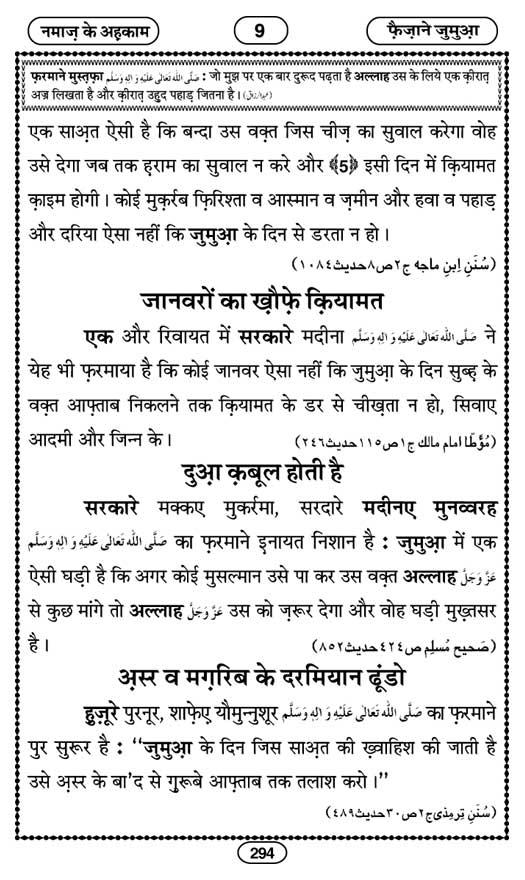 नमाज़ के अह़काम
9
फ़ैज़ाने जुमुआ़
फ़रमाने मुस्त़फ़ा صَلَّى اللهُ تَعَالٰى عَلَيْهِ وَاٰلِهٖ وَسَلَّم : जो मुझ पर एक बार दुरूद पढ़ता है अल्लाह उस के लिये एक क़ीरात़
अज्र लिखता है और क़ीरात़ उहुद पहाड़ जितना है। (عبدالرزاق)
एक साअ़त ऐसी है कि बन्दा उस वक़्त जिस चीज़ का सुवाल करेगा वोह
उसे देगा जब तक ह़राम का सुवाल न करे और ﴾5﴿ इसी दिन में क़ियामत
क़ाइम होगी। कोई मुक़र्रब फ़िरिश्ता व आस्मान व ज़मीन और हवा व पहाड़
और दरिया ऐसा नहीं कि जुमुआ़ के दिन से डरता न हो।
(سُنَنِ اِبنِ ماجه ج٢ص٨حديث١٠٨٤)
जानवरों का ख़ौफ़े क़ियामत
एक और रिवायत में सरकारे मदीना صَلَّى اللهُ تَعَالٰى عَلَيْهِ وَاٰلِهٖ وَسَلَّم ने
येह भी फ़रमाया है कि कोई जानवर ऐसा नहीं कि जुमुआ़ के दिन सुब्ह़ के
वक़्त आफ़्ताब निकलने तक क़ियामत के डर से चीख़ता न हो, सिवाए
आदमी और जिन्न के। (مُوَطّا امام مالك ج١ص١١٥حديث٢٤٦)
दुआ़ क़बूल होती है
सरकारे मक्कए मुकर्रमा, सरदारे मदीनए मुनव्वरह
صَلَّى اللهُ تَعَالٰى عَلَيْهِ وَاٰلِهٖ وَسَلَّم का फ़रमाने इ़नायत निशान है : जुमुआ़ में एक
ऐसी घड़ी है कि अगर कोई मुसल्मान उसे पा कर उस वक़्त अल्लाह عَزَّوَجَلَّ
से कुछ मांगे तो अल्लाह عَزَّوَجَلَّ उस को ज़रूर देगा और वोह घड़ी मुख़्तसर
है। (صَحيح مُسلِم ص٤٢٤حديث٨٥٢)
अ़स्र व मग़रिब के दरमियान ढूंडो
हुज़ूरे पुरनूर, शाफ़ेए़ यौमुन्नुशूर صَلَّى اللهُ تَعَالٰى عَلَيْهِ وَاٰلِهٖ وَسَلَّم का फ़रमाने
पुर सुरूर है : ‘‘जुमुआ़ के दिन जिस साअ़त की ख़्वाहिश की जाती है
उसे अ़स्र के बा’द से ग़ुरूबे आफ़्ताब तक तलाश करो।’’
(سُنَنِ تِرمِذى ج٢ص٣٠حديث٤٨٩)
294